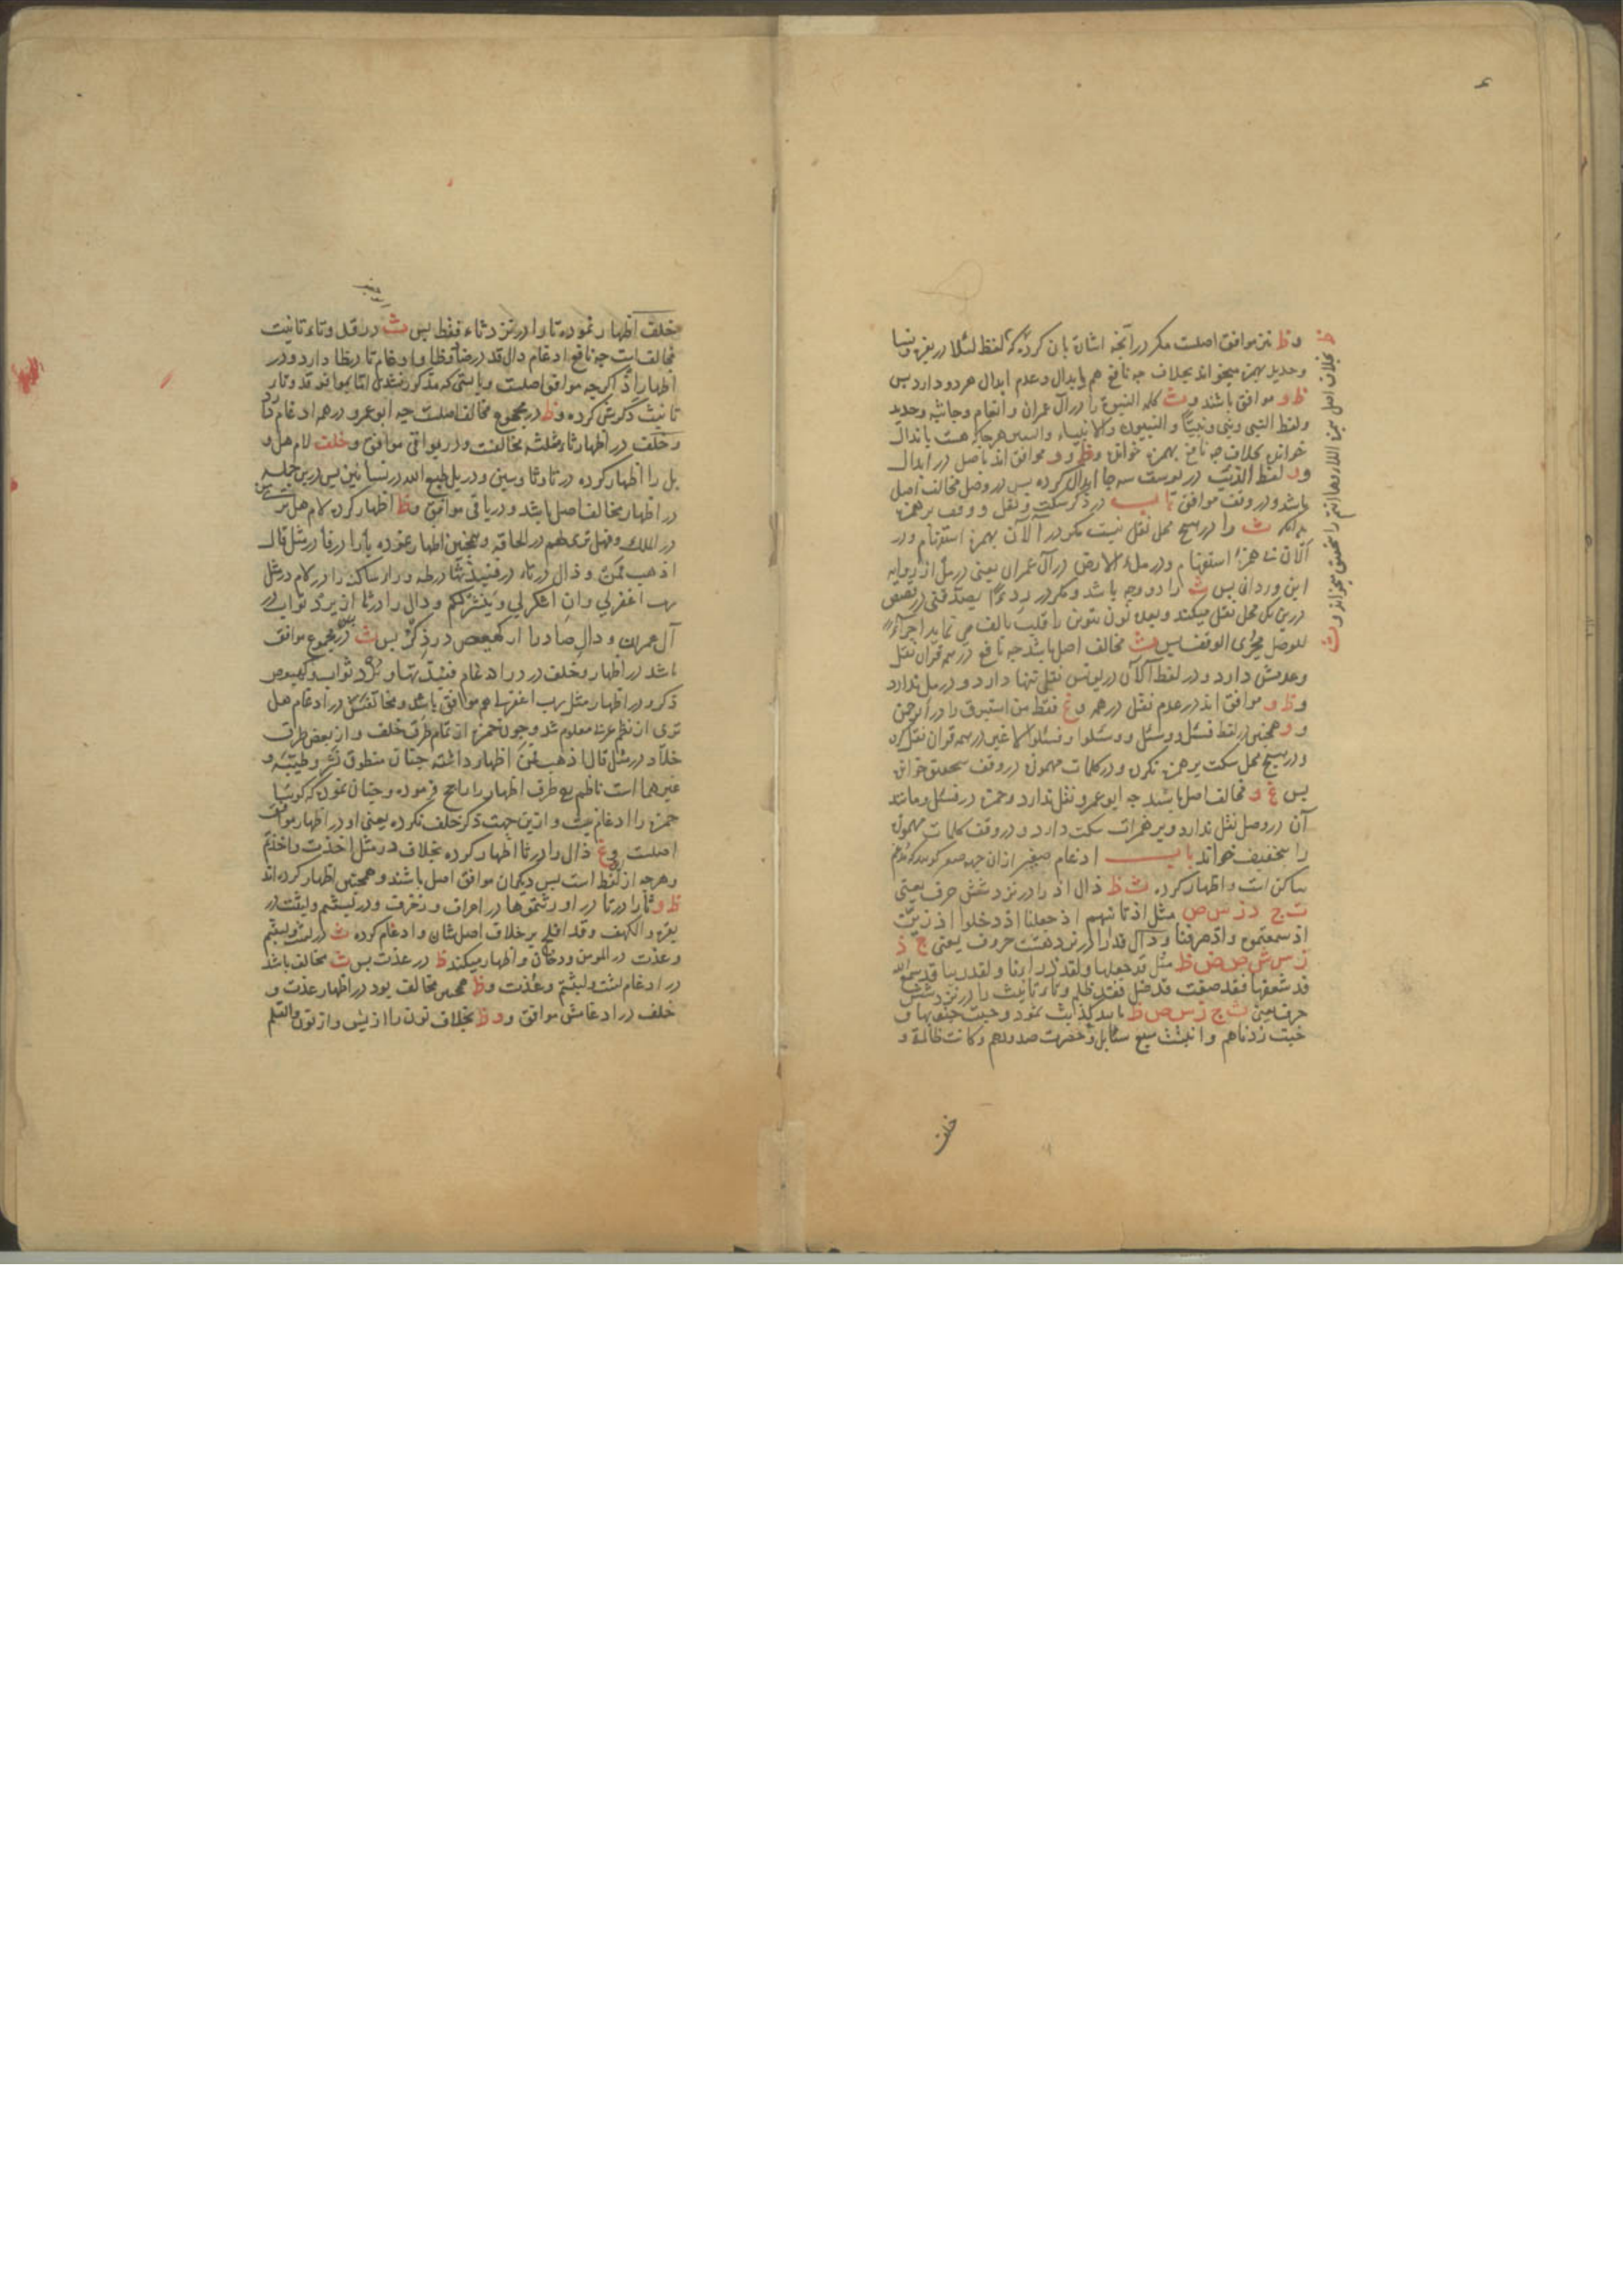 ۶
و ظ نیز موافق اصلست مکر در آنچه اشان بان کرده که لفظ لئلا در بقره و نسا
و حدید بهمزه میخواند بخلاف چه نافع هم بابدال و عدم ابدال هر دو دارد پس
ظ و موافق باشند و ث کله النبوة را در آل عمران و انعام و جاثیه و حدید
ولفظ النبی و نبی و نبیًّا و النبیون و الانبیاء و هرجا که هست بابدال
خوانده بخلاف چه نافع بهمزه خوانده و ظ و و موافق اند باصل در ابدال
و لفظ الذئب در یوسف سه جا ابدال کرده پس در وصل مخالف اصل
باشد و در وقف موافق باب در ذکر سکت و نقل و وقف بر همزه
بدانکه ث را در هیچ محل نقل نیست مکر در آلآن بهمزه استفهام و در
الآن همزه استفهام و در ملء الارض در آل عمران یعنی در ملء از روایه
ابن وردان پس ث را دو وجه باشد و مکر در ردءًا یصدقنی در قصص
درین یک محل نقل میکند و بعده نون تنوین را قلب بالف می نماید اجراء
للوصل مجری الوقف پس ث مخالف اصل باشد چه نافع در همه قرآن نقل
و عدمش دارد و در لفظ آلآن در یونس نقل تنها دارد و در ملء ندارد
و ظ و موافق اند در عدم نقل در همه و غ فقط من استبرق را در الرحمن
و و همچنین در لفظ فسئل و وسئل و وسئلوا و فسئلوا لا غیر در همه قرآن نقل کرده
و در هیچ محل سکت بر همزه نکرده و در کلمات مهموزه در وقف بتحقیق خوانده
پس غ و مخالف اصل باشند چه ابو عمرو نقل ندارد و حمزه در فسئل و مانند
آن در وصل نقل ندارد و بر همزات سکت دارد و در وقف کلمات مهموزه
را بتخفیف خواند باب ادغام صغیر از ان جهه صغیر کویند که مدغم
ساکن است و اظهار کرده ث ظ ذال اذ را در نزد شش حرف یعنی
ت ج د ز س ص مثل اذ تاتیهم اذ جعلنا اذ دخلوا اذ زین
اذ سمعتموه و اذ صرفنا و دال قد را در نزد هشت حروف یعنی ج ذ
ز س ش ص ض ظ مثل قد جعلها ولقد ذرانا ولقد زینا قد سمع الله
قد شغفها فقد صغت قد ضل فقد ظلم و تاء تانیث را در نزد شش
حرف یعنی ث ج ز س ص ظ مانند کذبت ثمود وجبت جنوبها و
خبت زدناهم و انبتت سبع سنابل و حصرت صدورهم و کانت ظالمة و
خلف
خلف اظهار نموده تا را در نزد ثاء فقط پس ث در قد و تاء تانیث
مخالفست چه نافع ادغام دال قد در ضا و ظا و ادغام تا در ظا دارد و در
اظهار اذ اکرچه موافق اصلست و بایستی که مذکور نشدی اما بموافقه قد و تاء
تانیث ذکرش کرده و ظ در مجموع مخالف اصلست چه ابو عمرو در همه ادغام دارد
و خلف در اظهار ثاء مثلثه مخالفست و در بواقی موافق و خلف لام هل و
بل را اظهار کرده در تا و ثا و سین و در بل طبع الله در نسا نیز پس درین جمله
در اظهار مخالف اصل باشد و در باقی موافق و ظ اظهار کرده لام هل تری
در الملک و فهل تری لهم در الحاقه و همچنین اظهار نموده با را در فا در مثل قال
اذهب فمن و ذال در تاء در فنبذتها در طه و راء ساکنه را در لام در مثل
رب اغفر لی و ان اشکر لی و ینشر لکم و دال را در ثا ان یرد ثواب در
آل عمران و دال صاد را از کهیعص در ذکر پس ث در مجموع موافق
باشد در اظهار و خلف در ادغام فنبذتها و یرد ثواب و کهیعص
ذکر و در اظهار مثل رب اغفر لی هم موافق باشد و مخالفتش در ادغام هل
تری از نظم غرّه معلوم شد و چون حمزه از تمام طرق خلف و از بعض طرق
خلّاد در مثل قال اذهب فمن اظهار داشته چنان منطوق نشر و طیبه و
غیرهما است ناظم رح طرف اظهار را راجح فرموده و چنان نموده که کوییا
حمزه را ادغام نیست و ازین جهت ذکر خلف نکرده یعنی او در اظهار موافق
اصلست و غ ذال را در تا اظهار کرده بخلاف در مثل اخذت و اخذتم
و هرچه از لفظ است پس دیکران موافق اصل باشند و همچنین اظهار کرده اند
ظ و ثا را در تا در اورثتموها در اعراف و زخرف و در لبثتم و لبثت در
بقره و الکهف و قد افلح بر خلاف اصل شان و ادغام کرده ث در لبثت و لبثتم
و عذت در المومن و دخان و اظهار میکند ظ در عذت پس ث مخالف باشد
در ادغام لبثت و لبثتم و عذت و ظ همچنین مخالف بود در اظهار عذت و
خلف در ادغامش موافق و و ظ بخلاف نون را از یس و از نون والقلم